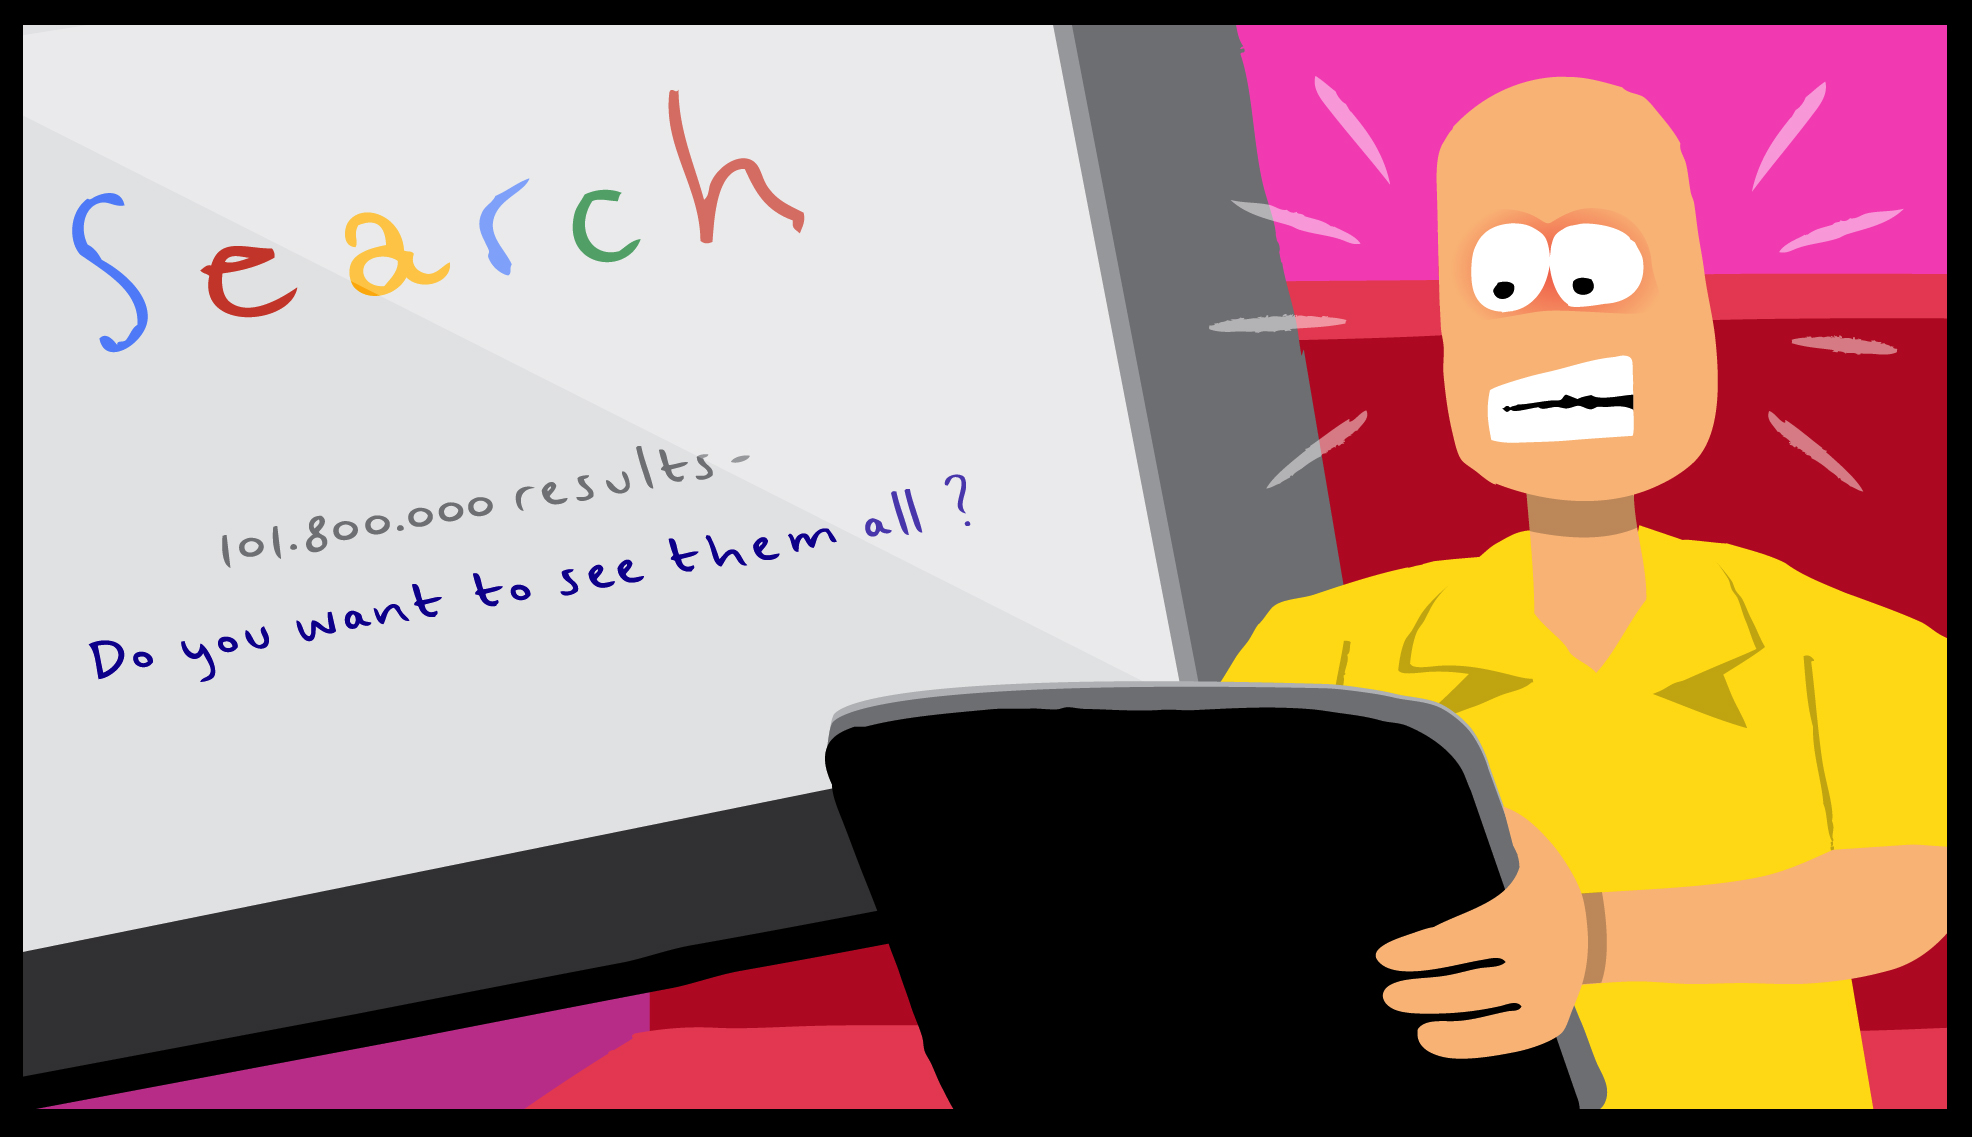 Search
101.800.000 results-
Do you want to see them all ?